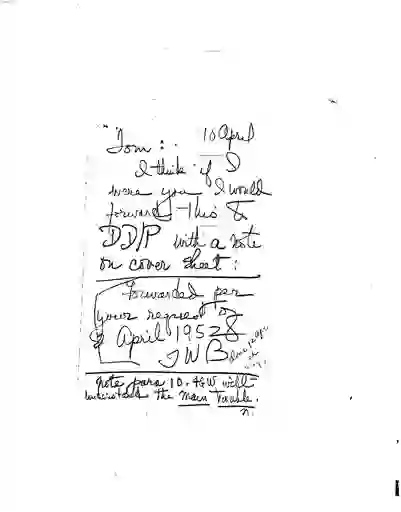 10 April
Tom:
I think if I
were you I would
forward this to
DD/P with a note
on cover sheet:
Forwarded per
your request of
8 April 1952
JWB
note para 10.
the main trouble.